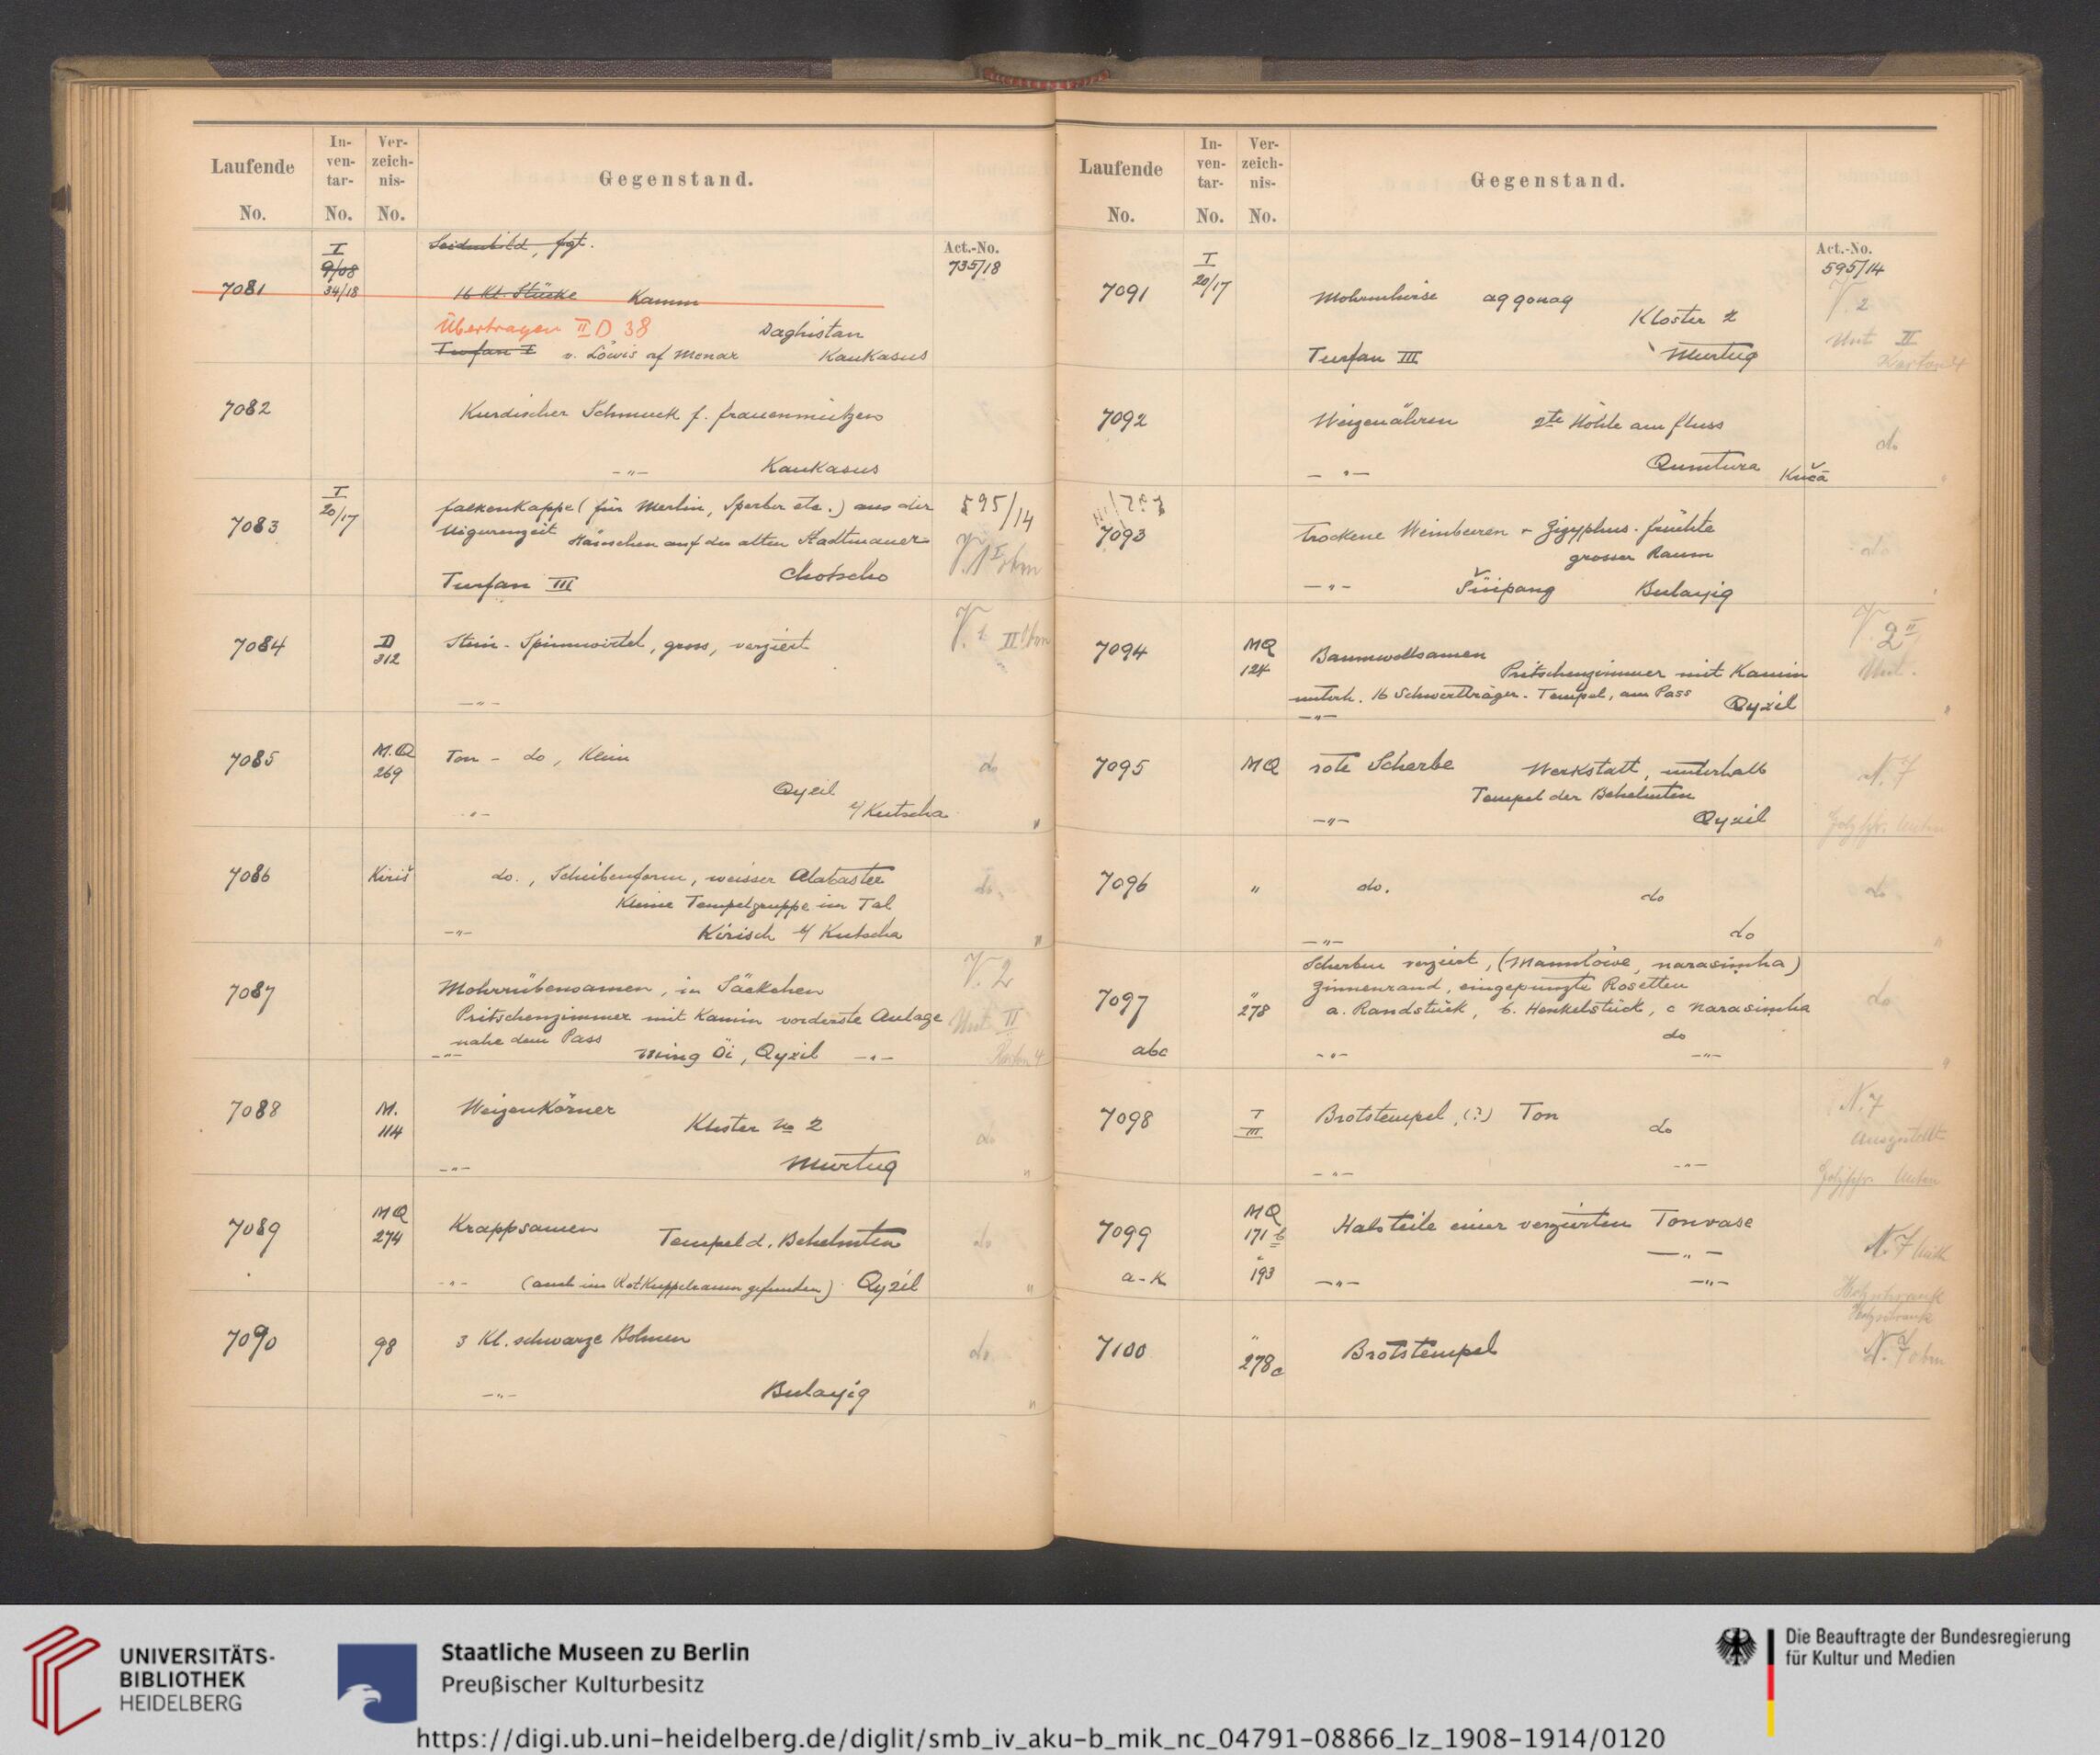 Laufende No.
In-ven-tar- No.
Ver-zeich-nis- No.
Gegenstand.
I
9/08
34/18
Seidenbild, frgt.
Act.-No.
735/18
7081
16 Kl. Stücke Kamm
Übertragen II D 38 Daghistan
Turfan I v. Löwis of Menar Kaukasus
7082
Kurdischer Schmuck f. Frauenmützen
-"- Kaukasus
7083
I
20/17
Falkenkappe (für Merlin, Sperber etc.) aus der
Uigurenzeit Häuschen auf der alten Stadtmauer
Turfan III Chotscho
595/14
V. 1 I oben
7084
D
312
Stein-Spinnwirtel, gross, verziert
-"-
V. 1 II
7085
M.Q
269
Ton - do, klein
Qyzil
-"- b/Kutscha
do
"
7086
Kiriš
do., Scheibenform, weisser Alabaster
Kleine Tempelgruppe im Tal
-"- Kirisch b/ Kutscha
do.
"
7087
Mohrrübensamen, in Säckchen
Pritschenzimmer mit Kamin vorderste Anlage
nahe dem Pass
-"- Ming Öi, Qyzil -"-
V. 2
Unt II
Karton 4
7088
M.
114
Weizenkörner
Kloster No 2
-"- Murtuq
do
"
7089
MQ
274
Krappsamen Tempel d. Behelmten
-"- (auch im Rotkuppelraum gefunden) Qyzil
do
"
7090
98
3 Kl. schwarze Bohnen
-"- Bulayiq
do.
"
Laufende No.
In-ven-tar- No.
Ver-zeich-nis- No.
Gegenstand.
Act.-No.
595/14
7091
I
20/17
Mohrenhirse aq qonaq
Kloster 2
Turfan III Murtuq
V. 2
Unt II
Karton 4
7092
Weizenähren 2te Höhle am Fluss
-"- Qumtura Kučā
do
7093
Trockene Weinbeeren + Zizyphus-früchte
grosser Raum
-"- Šüipang Bulayiq
do
7094
MQ
124
Baumwollsamen
Pritschenzimmer mit Kamin
unterh. 16 Schwertträger-Tempel, am Pass Qyzil
-"-
V. 2 II
Unt.
"
7095
MQ
rote Scherbe Werkstatt, unterhalb
Tempel der Behelmten
-"- Qyzil
N. 7
7096
"
do. do
-"- do
do.
"
7097
abc
"
278
Scherben verziert, (Mannlöwe, narasiṃha)
Zinnenrand, eingepunzte Rosetten
a. Randstück, b. Henkelstück, c Narasiṃha
do
-"- -"-
do
"
7098
T
III
Brotstempel, (?) Ton do
-"- -"-
N. 7
Ausgestellt
7099
a-k
MQ
171 b
"
193
Halsteile einer verzierten Tonvase
-"-
-"- -"-
N. 7
Holzschrank
7100
"
278c
Brotstempel
Holzschrank
N. 7 oben
UNIVERSITÄTS-
BIBLIOTHEK
HEIDELBERG
Staatliche Museen zu Berlin
Preußischer Kulturbesitz
Die Beauftragte der Bundesregierung
für Kultur und Medien
https://digi.ub.uni-heidelberg.de/diglit/smb_iv_aku-b_mik_nc_04791-08866_lz_1908-1914/0120